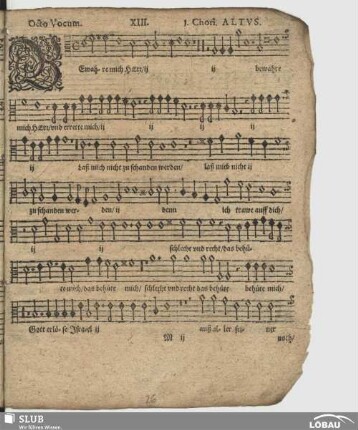 Octo Vocum. XIII. 1. Chori. ALTVS.
BEwah- re mich HErr/ ij ij bewahre
mich HErr/ und errette mich/ ij ij ij ij
ij Laß mich nicht zu schanden werden/ laß mich nicht ij
zu schanden wer- den/ ij denn ich trawe auff dich/
ij ij schlecht und recht/ das behü-
te mich/ das behüte mich/ schlecht und recht das behüte behüte mich/
Gott erlö- se Israel ij ij auß al- ler sei- ner
M ij noth/
26
SLUB
Wir führen Wissen.
LÖBAU